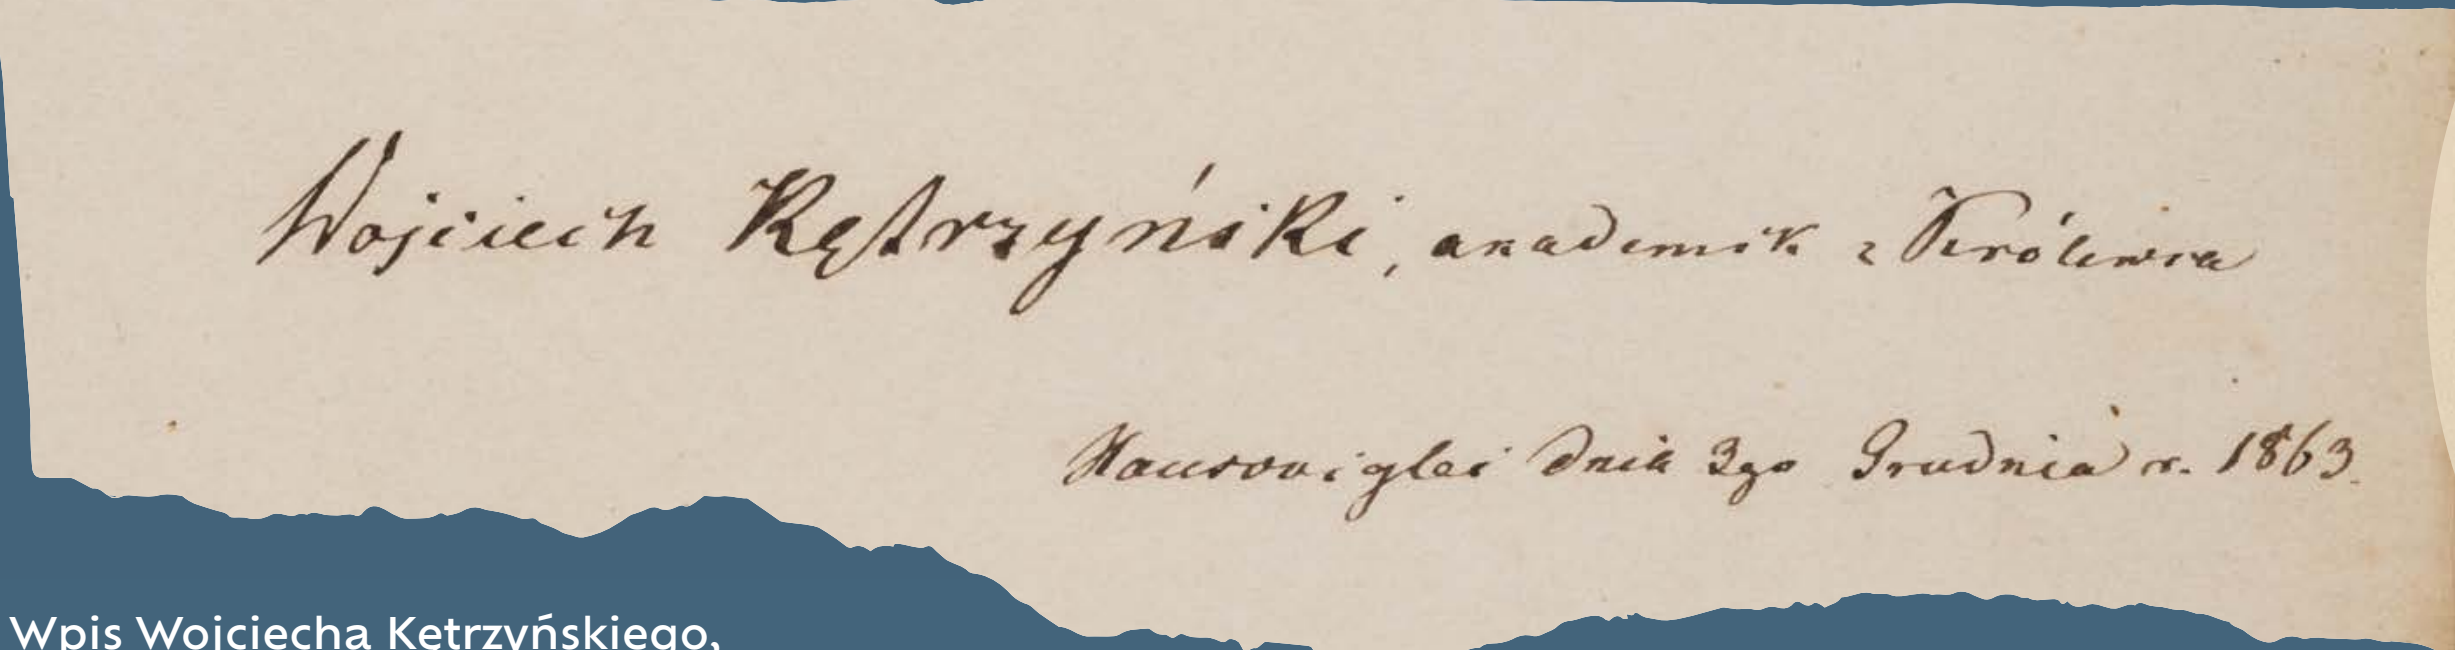 Wojciech Kętrzyński, akademik z Królewca
Hausvoigtei dnia 3go Grudnia r. 1863.
Wpis Wojciecha Kętrzyńskiego,